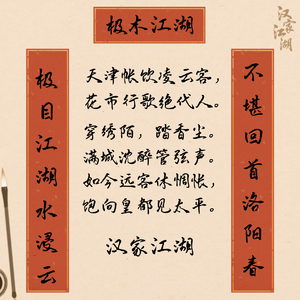 汉家江湖
极木江湖
不堪回首洛阳春
极目江湖水浸云
天津帐饮凌云客，
花市行歌绝代人。
穿绣陌，踏香尘。
满城沈醉管弦声。
如今远客休惆怅，
饱向皇都见太平。
汉家江湖